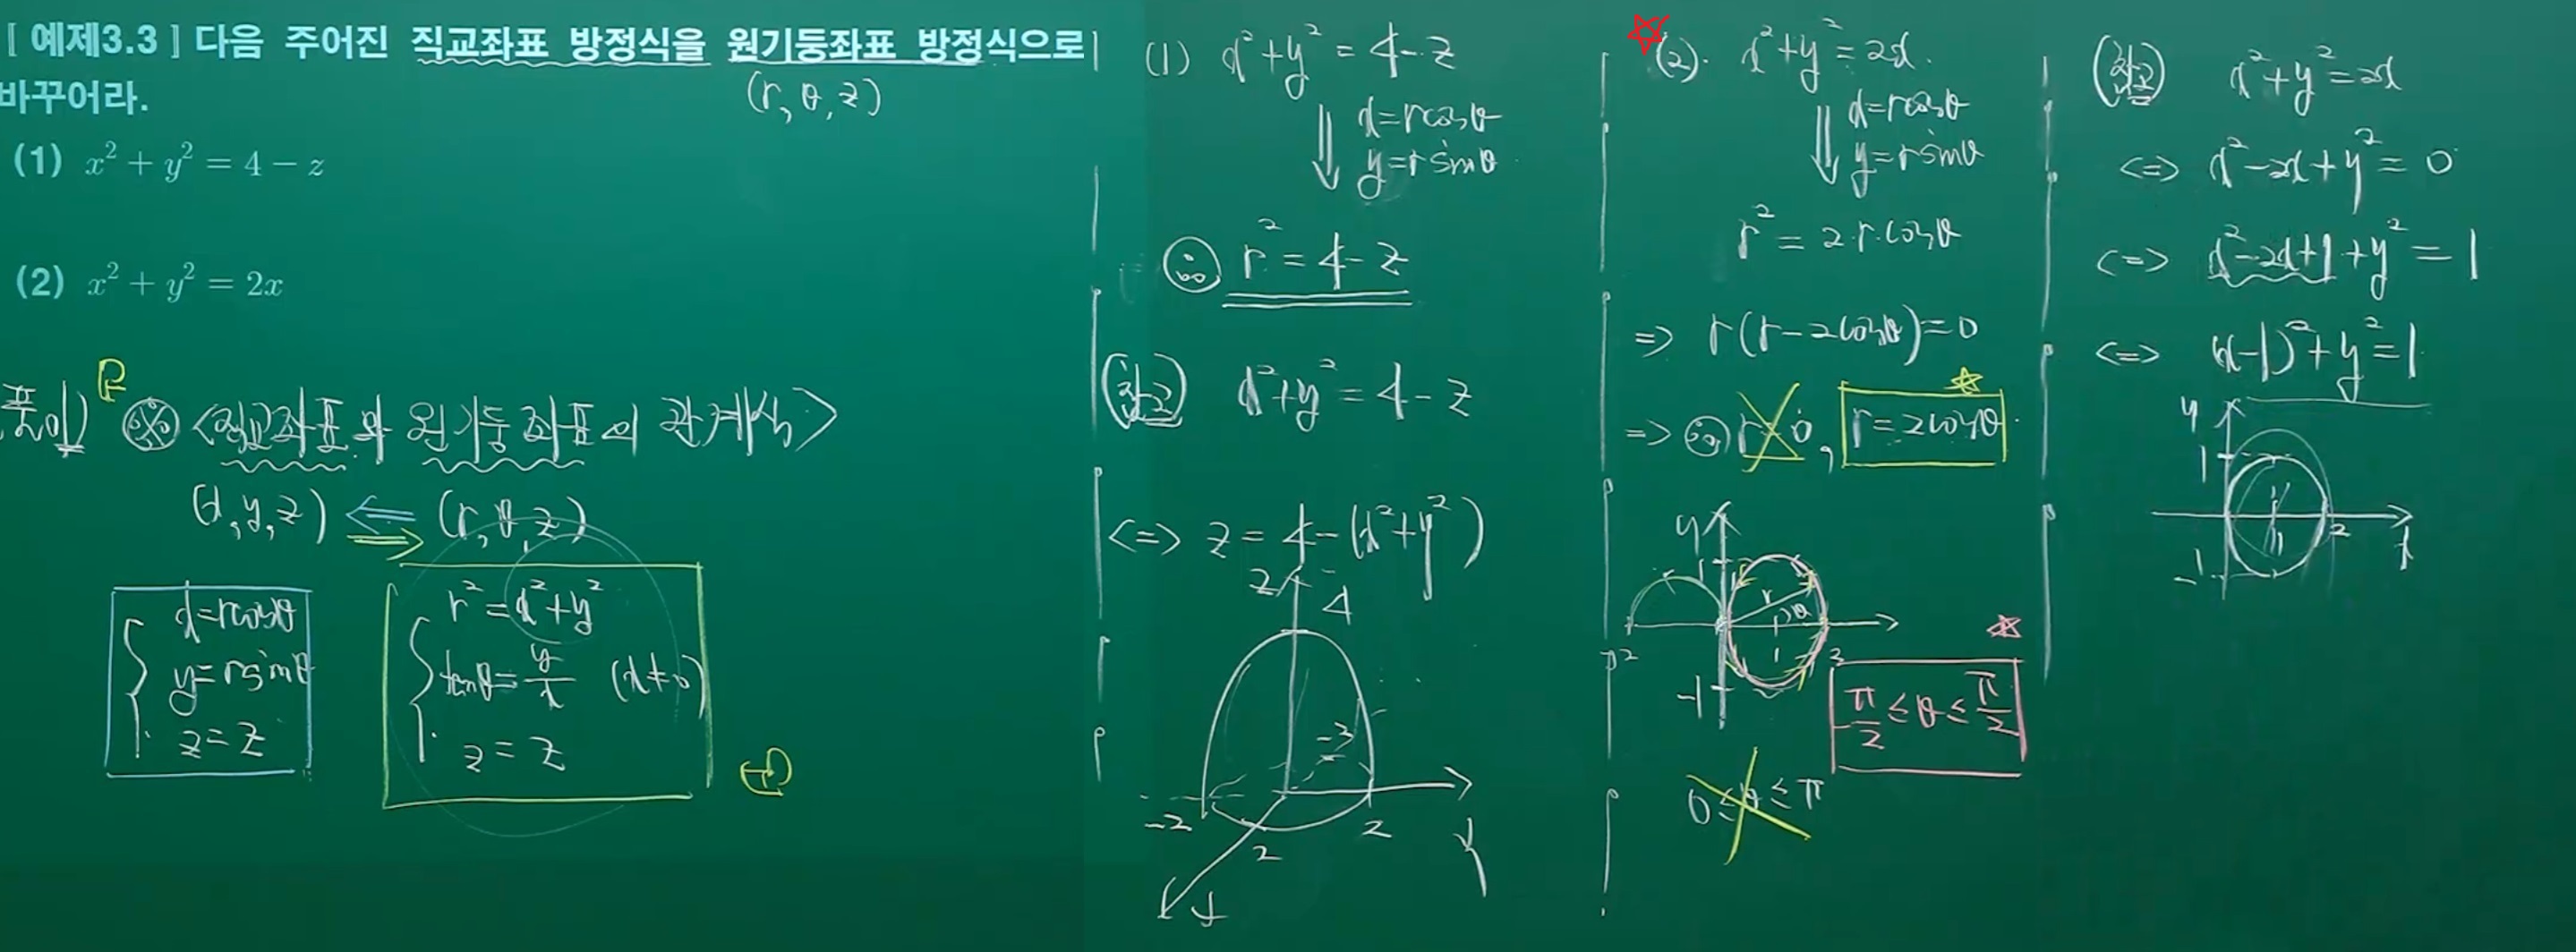 [ 예제3.3 ] 다음 주어진 직교좌표 방정식을 원기둥좌표 방정식으로
바꾸어라.
(r, θ, z)
(1) x² + y² = 4 − z
(2) x² + y² = 2x
풀이) <직교좌표와 원기둥좌표의 관계식>
(x, y, z) ⇐ ⇒ (r, θ, z)
x=rcosθ
y=rsinθ
z=z
r²=x²+y²
tanθ=y/x (x≠0)
z=z
(1) x²+y²=4−z
⇓ x=rcosθ
y=rsinθ
∴ r²=4−z
(참고) x²+y²=4−z
<=> z=4−(x²+y²)
z
4
-2
-2
2
2
y
x
(2). x²+y²=2x.
⇓ x=rcosθ
y=rsinθ
r²=2·r·cosθ
=> r(r−2cosθ)=0
=> ∴ r=0, r=2cosθ
y
1
r
θ
1
2
-2
-1
-π/2 ≤ θ ≤ π/2
0≤θ≤π
(참고) x²+y²=2x
<=> x²−2x+y²=0
<=> x²−2x+1+y²=1
<=> (x−1)²+y²=1
y
1
1
2
x
-1